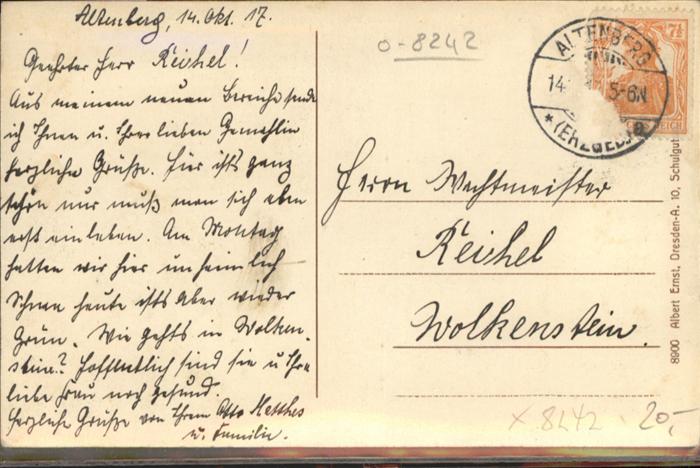 Altenberg, 14. Okt. 17.
Geehrter Herr Reichel!
Aus meinem neuen Bereiche sende
ich Ihnen u. Ihrer lieben Gemahlin
herzliche Grüße. Hier ists ganz
schön nur muß man sich eben
erst einleben. Am Montag
hatten wir hier unheimlich
Schnee heute ists aber wieder
Grün. Wie gehts in Wolken-
stein? Hoffentlich sind sie u Ihre
liebe Frau noch gesund.
Herzliche Grüße von Ihrem Otto Matthes
u. Familie.
0-8242
ALTENBERG
14. 5-6N
* (ERZGEB.) a
7½
Herrn Wachtmeister
Reichel
Wolkenstein.
8900 Albert Ernst, Dresden-A. 10, Schulgut
x 8242 20,-